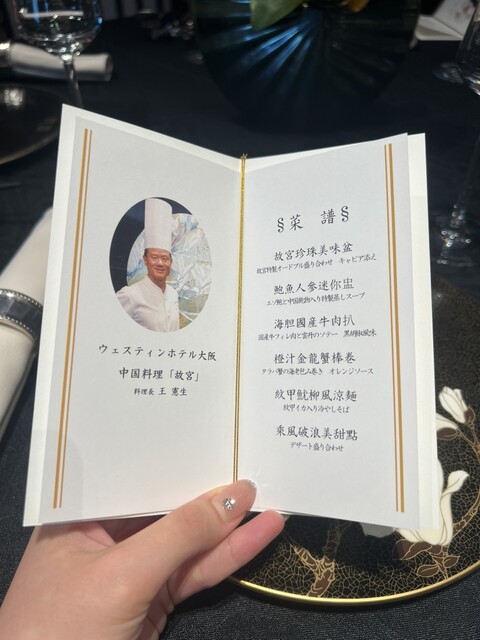 ウェスティンホテル大阪
中国料理「故宮」
料理長 王 憲生
§菜 譜§
故宮珍珠美味盆
故宮特製オードブル盛り合わせ キャビア添え
鮑魚人參迷你盅
エゾ鮑と中国乾物入り特製蒸しスープ
海胆國産牛肉扒
国産牛フィレ肉と雲丹のソテー 黒胡椒風味
橙汁金龍蟹棒卷
タラバ蟹の海老包み巻き オレンジソース
紋甲魷柳風涼麵
紋甲イカ入り冷やしそば
乘風破浪美甜點
デザート盛り合わせ